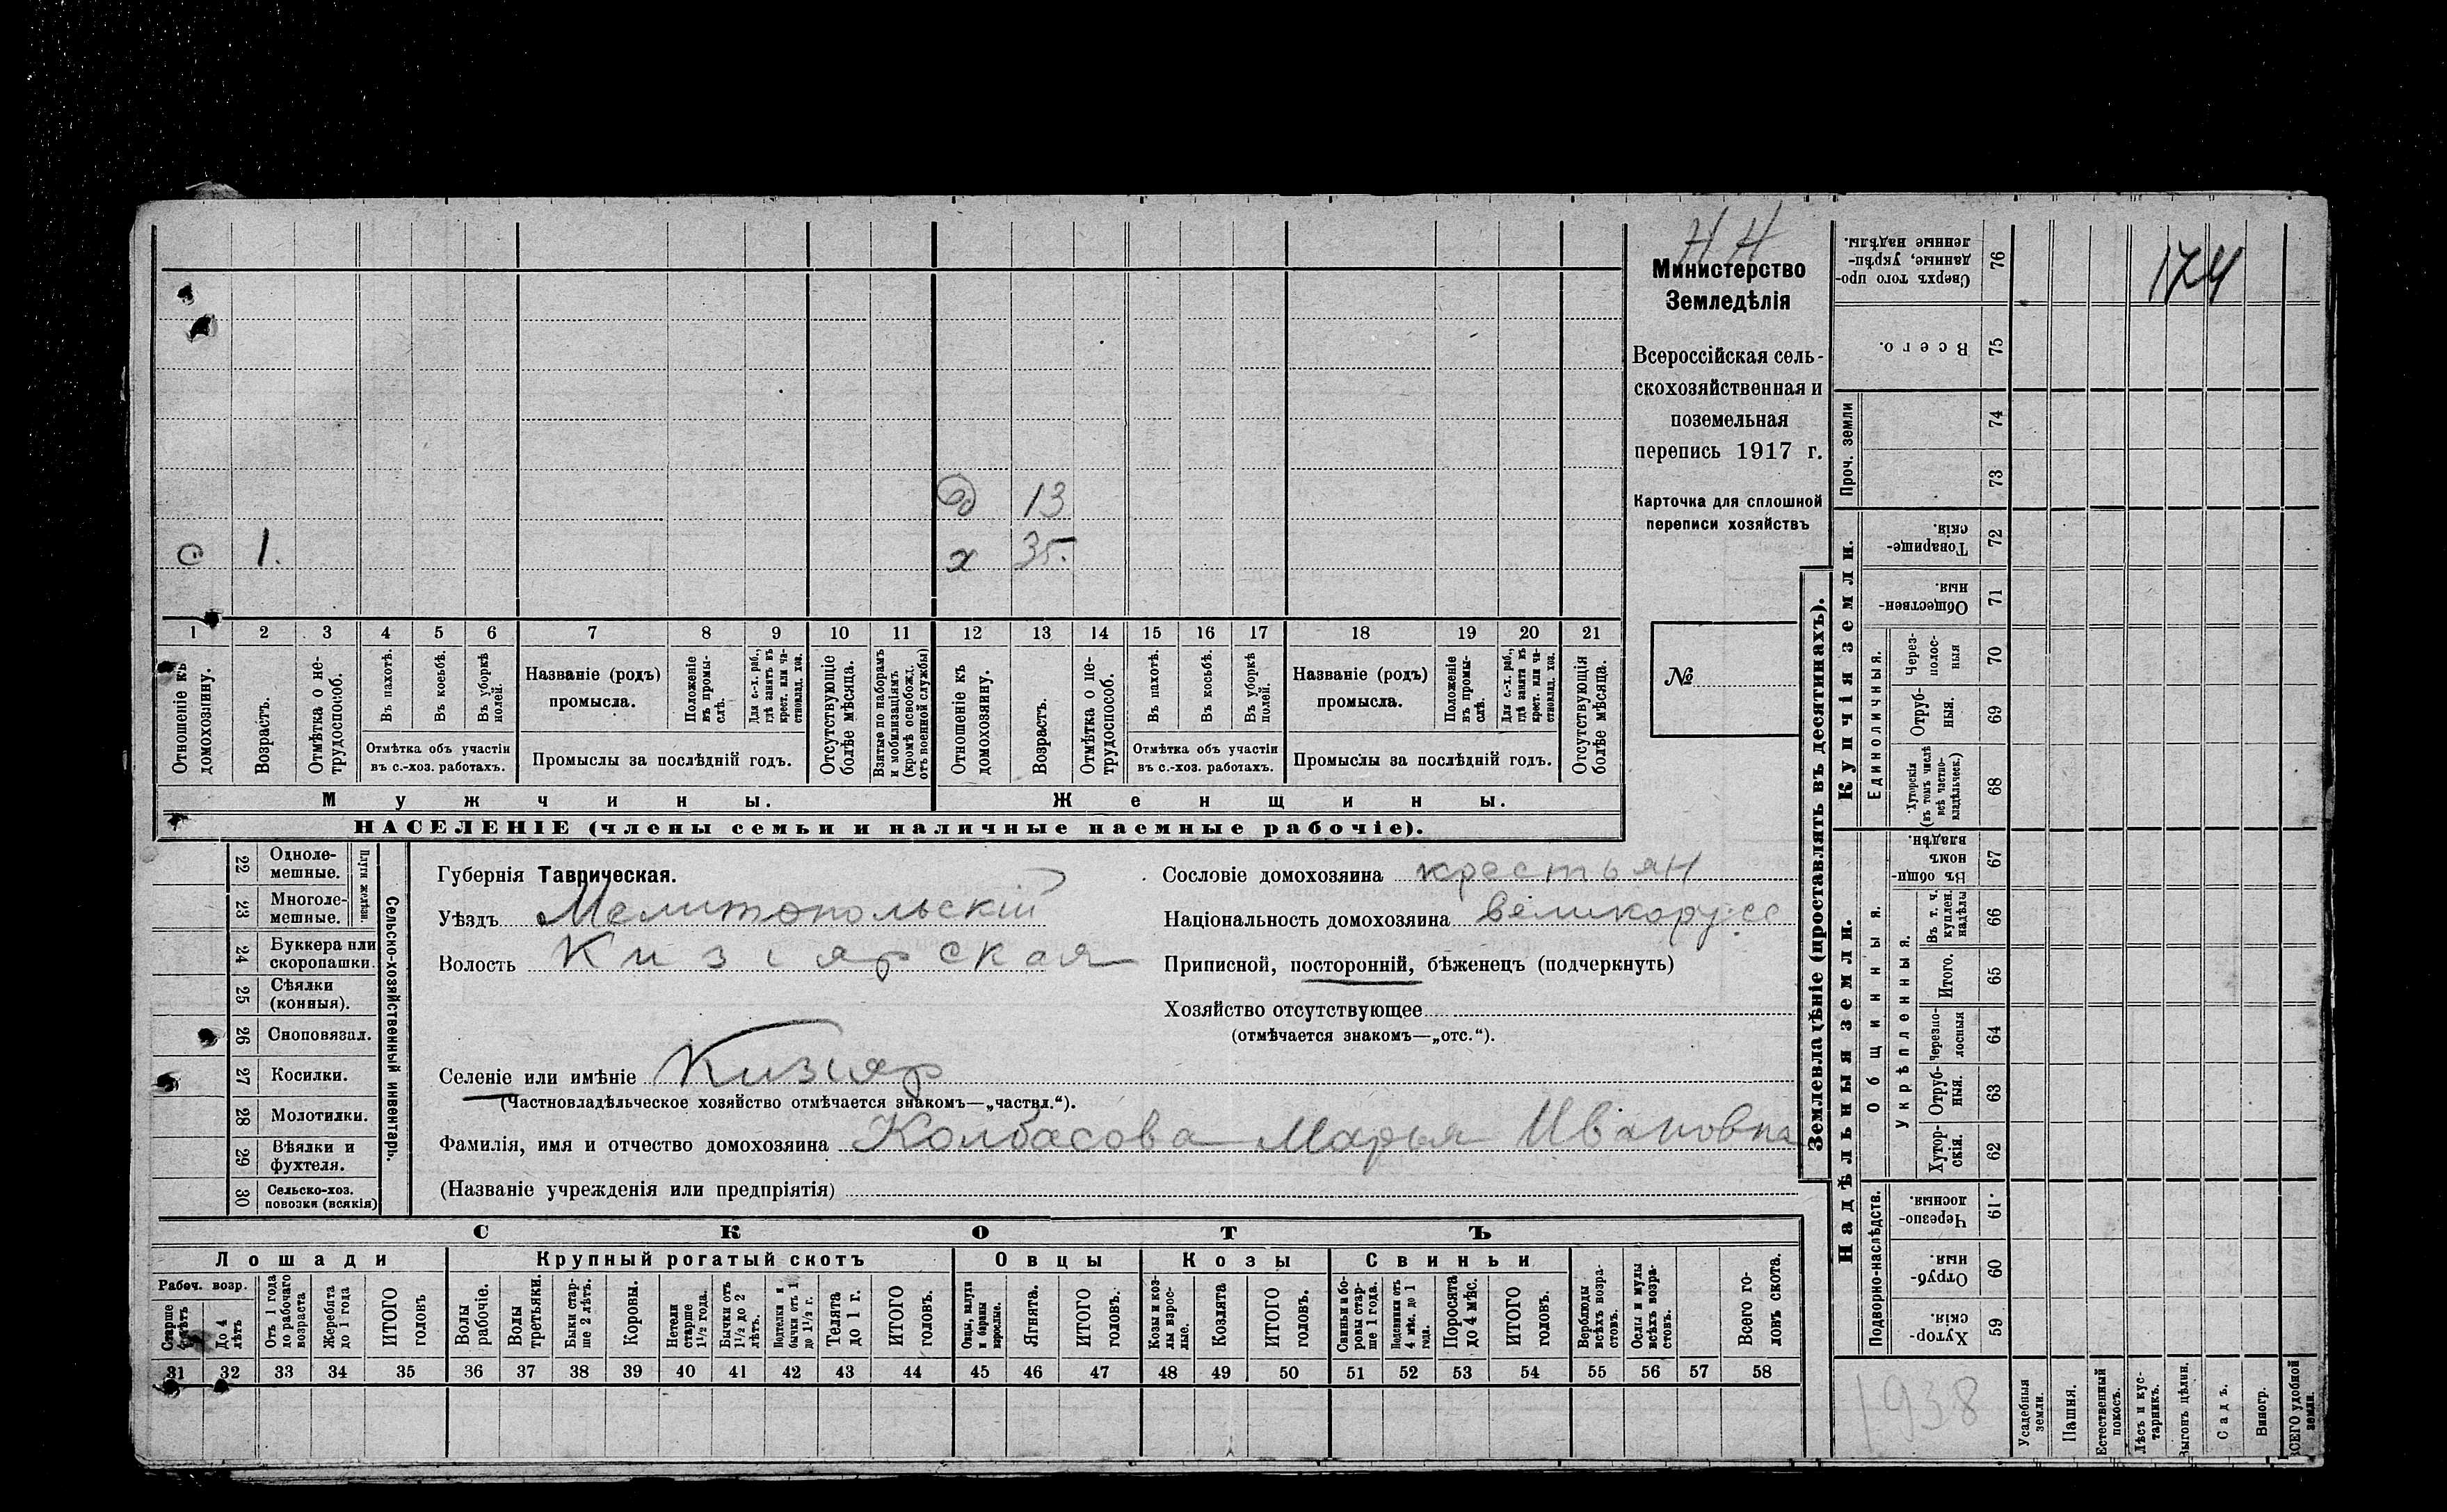 Н Н
Министерство
Земледѣлія
Всероссійская сель-
скохозяйственная и
поземельная
перепись 1917 г.
Карточка для сплошной
переписи хозяйствъ
№
д 13
с 1. х 35.
1 2 3 4 5 6 7 8 9 10 11 12 13 14 15 16 17 18 19 20 21
Отношеніе къ домохозяину.
Возрастъ.
Отмѣтка о не-трудоспособ.
Въ пахотѣ.
Въ косьбѣ.
Въ уборкѣ полей.
Отмѣтка объ участіи
въ с.-хоз. работахъ.
Названіе (родъ)
промысла.
Положеніе въ промы-слѣ.
Для с.-х. раб., гдѣ занятъ въ крест. или ча-стновлад. хоз.
Промыслы за послѣдній годъ.
Отсутствующіе болѣе мѣсяца.
Взятые по наборамъ и мобилизаціямъ (кромѣ освобожд. отъ военной службы)
Отношеніе къ домохозяину.
Возрастъ.
Отмѣтка о не-трудоспособ.
Въ пахотѣ.
Въ косьбѣ.
Въ уборкѣ полей.
Отмѣтка объ участіи
въ с.-хоз. работахъ.
Названіе (родъ)
промысла.
Положеніе въ промы-слѣ.
Для с.-х. раб., гдѣ занята въ крест. или ча-стновлад. хоз.
Промыслы за послѣдній годъ.
Отсутствующія болѣе мѣсяца.
Мужчины. Женщины.
НАСЕЛЕНІЕ (члены семьи и наличные наемные рабочіе).
22 Одноле-мешные.
23 Многоле-мешные.
Плуги желѣзн.
24 Буккера или скоропашки.
25 Сѣялки (конныя).
26 Сноповязал.
27 Косилки.
28 Молотилки.
29 Вѣялки и фухтеля.
30 Сельско-хоз. повозки (всякія)
Сельско-хозяйственный инвентарь.
Губернія Таврическая.
Уѣздъ Мелитопольскій
Волость Кизіярская
Селеніе или имѣніе Кизіяр
(Частновладѣльческое хозяйство отмѣчается знакомъ—„частвл.“).
Фамилія, имя и отчество домохозяина Колбасова Марья Ивановна
(Названіе учрежденія или предпріятія)
Сословіе домохозяина крестьян
Національность домохозяина великорусс
Приписной, посторонній, бѣженецъ (подчеркнуть)
Хозяйство отсутствующее
(отмѣчается знакомъ—„отс.“).
СКОТЪ
Лошади Крупный рогатый скотъ Овцы Козы Свиньи
Рабоч. возр.
Старше 4 лѣтъ
До 4 лѣтъ
Отъ 1 года до рабочаго возраста
Жеребята до 1 года
ИТОГО головъ
Волы рабочіе.
Волы третьяки.
Быки стар-ше 2 лѣтъ.
Коровы.
Нетели старше 1½ года.
Бычки отъ 1½ до 2 лѣтъ.
Подтелки и бычки отъ 1 до 1½ г.
Телята до 1 г.
ИТОГО головъ.
Овцы, валухи и бараны взрослые.
Ягнята.
ИТОГО головъ.
Козы и коз-лы взрос-лые.
Козлята
ИТОГО головъ.
Свиньи и бо-ровы стар-ше 1 года.
Подсвинки отъ 4 мѣс. до 1 года.
Поросята до 4 мѣс.
ИТОГО головъ.
Верблюды всѣхъ возра-стовъ.
Ослы и мулы всѣхъ возра-стовъ.
Всего го-ловъ скота.
31 32 33 34 35 36 37 38 39 40 41 42 43 44 45 46 47 48 49 50 51 52 53 54 55 56 57 58
Землевладѣніе (проставлять въ десятинахъ).
174
76 Сверхъ того про-данные, укрѣп-ленные надѣлы.
75 Всего.
Проч. земли
74
73
Купчія земли.
72 Товарище-скія.
71 Обществен-ныя.
Единоличныя.
70 Через-полос-ныя
69 Отруб-ныя.
68 Хуторскія (въ томъ числѣ всѣ частно-владѣльческ.)
Надѣльныя земли.
Общинныя.
67 Въ общи-номъ владѣн.
Укрѣпленныя.
66 Въ т. ч. куплен. надѣлы
65 Итого.
64 Черезпо-лосныя
63 Отруб-ныя.
62 Хутор-скія.
Подворно-наслѣдств.
61 Черезпо-лосныя.
60 Отруб-ныя.
59 Хутор-скія.
1938
Усадебныя земли.
Пашня.
Естественный покосъ.
Лѣсъ и кус-тарникъ.
Выгонъ цѣлин.
Садъ.
Виногр.
ВСЕГО удобной земли.